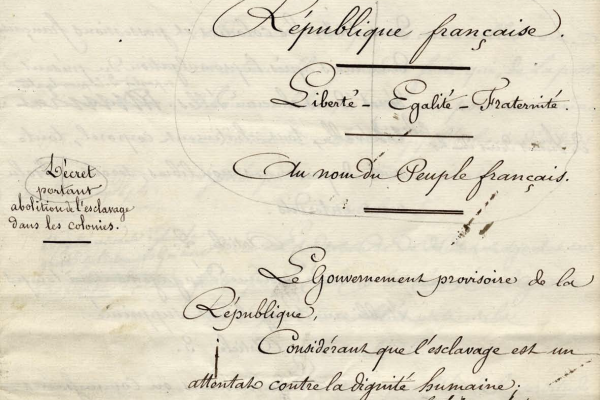 République française.
Liberté - Egalité - Fraternité.
Au nom du Peuple français.
Décret
portant
abolition de l'esclavage
dans les colonies.
Le Gouvernement provisoire de la
République,
Considérant que l'esclavage est un
attentat contre la dignité humaine;